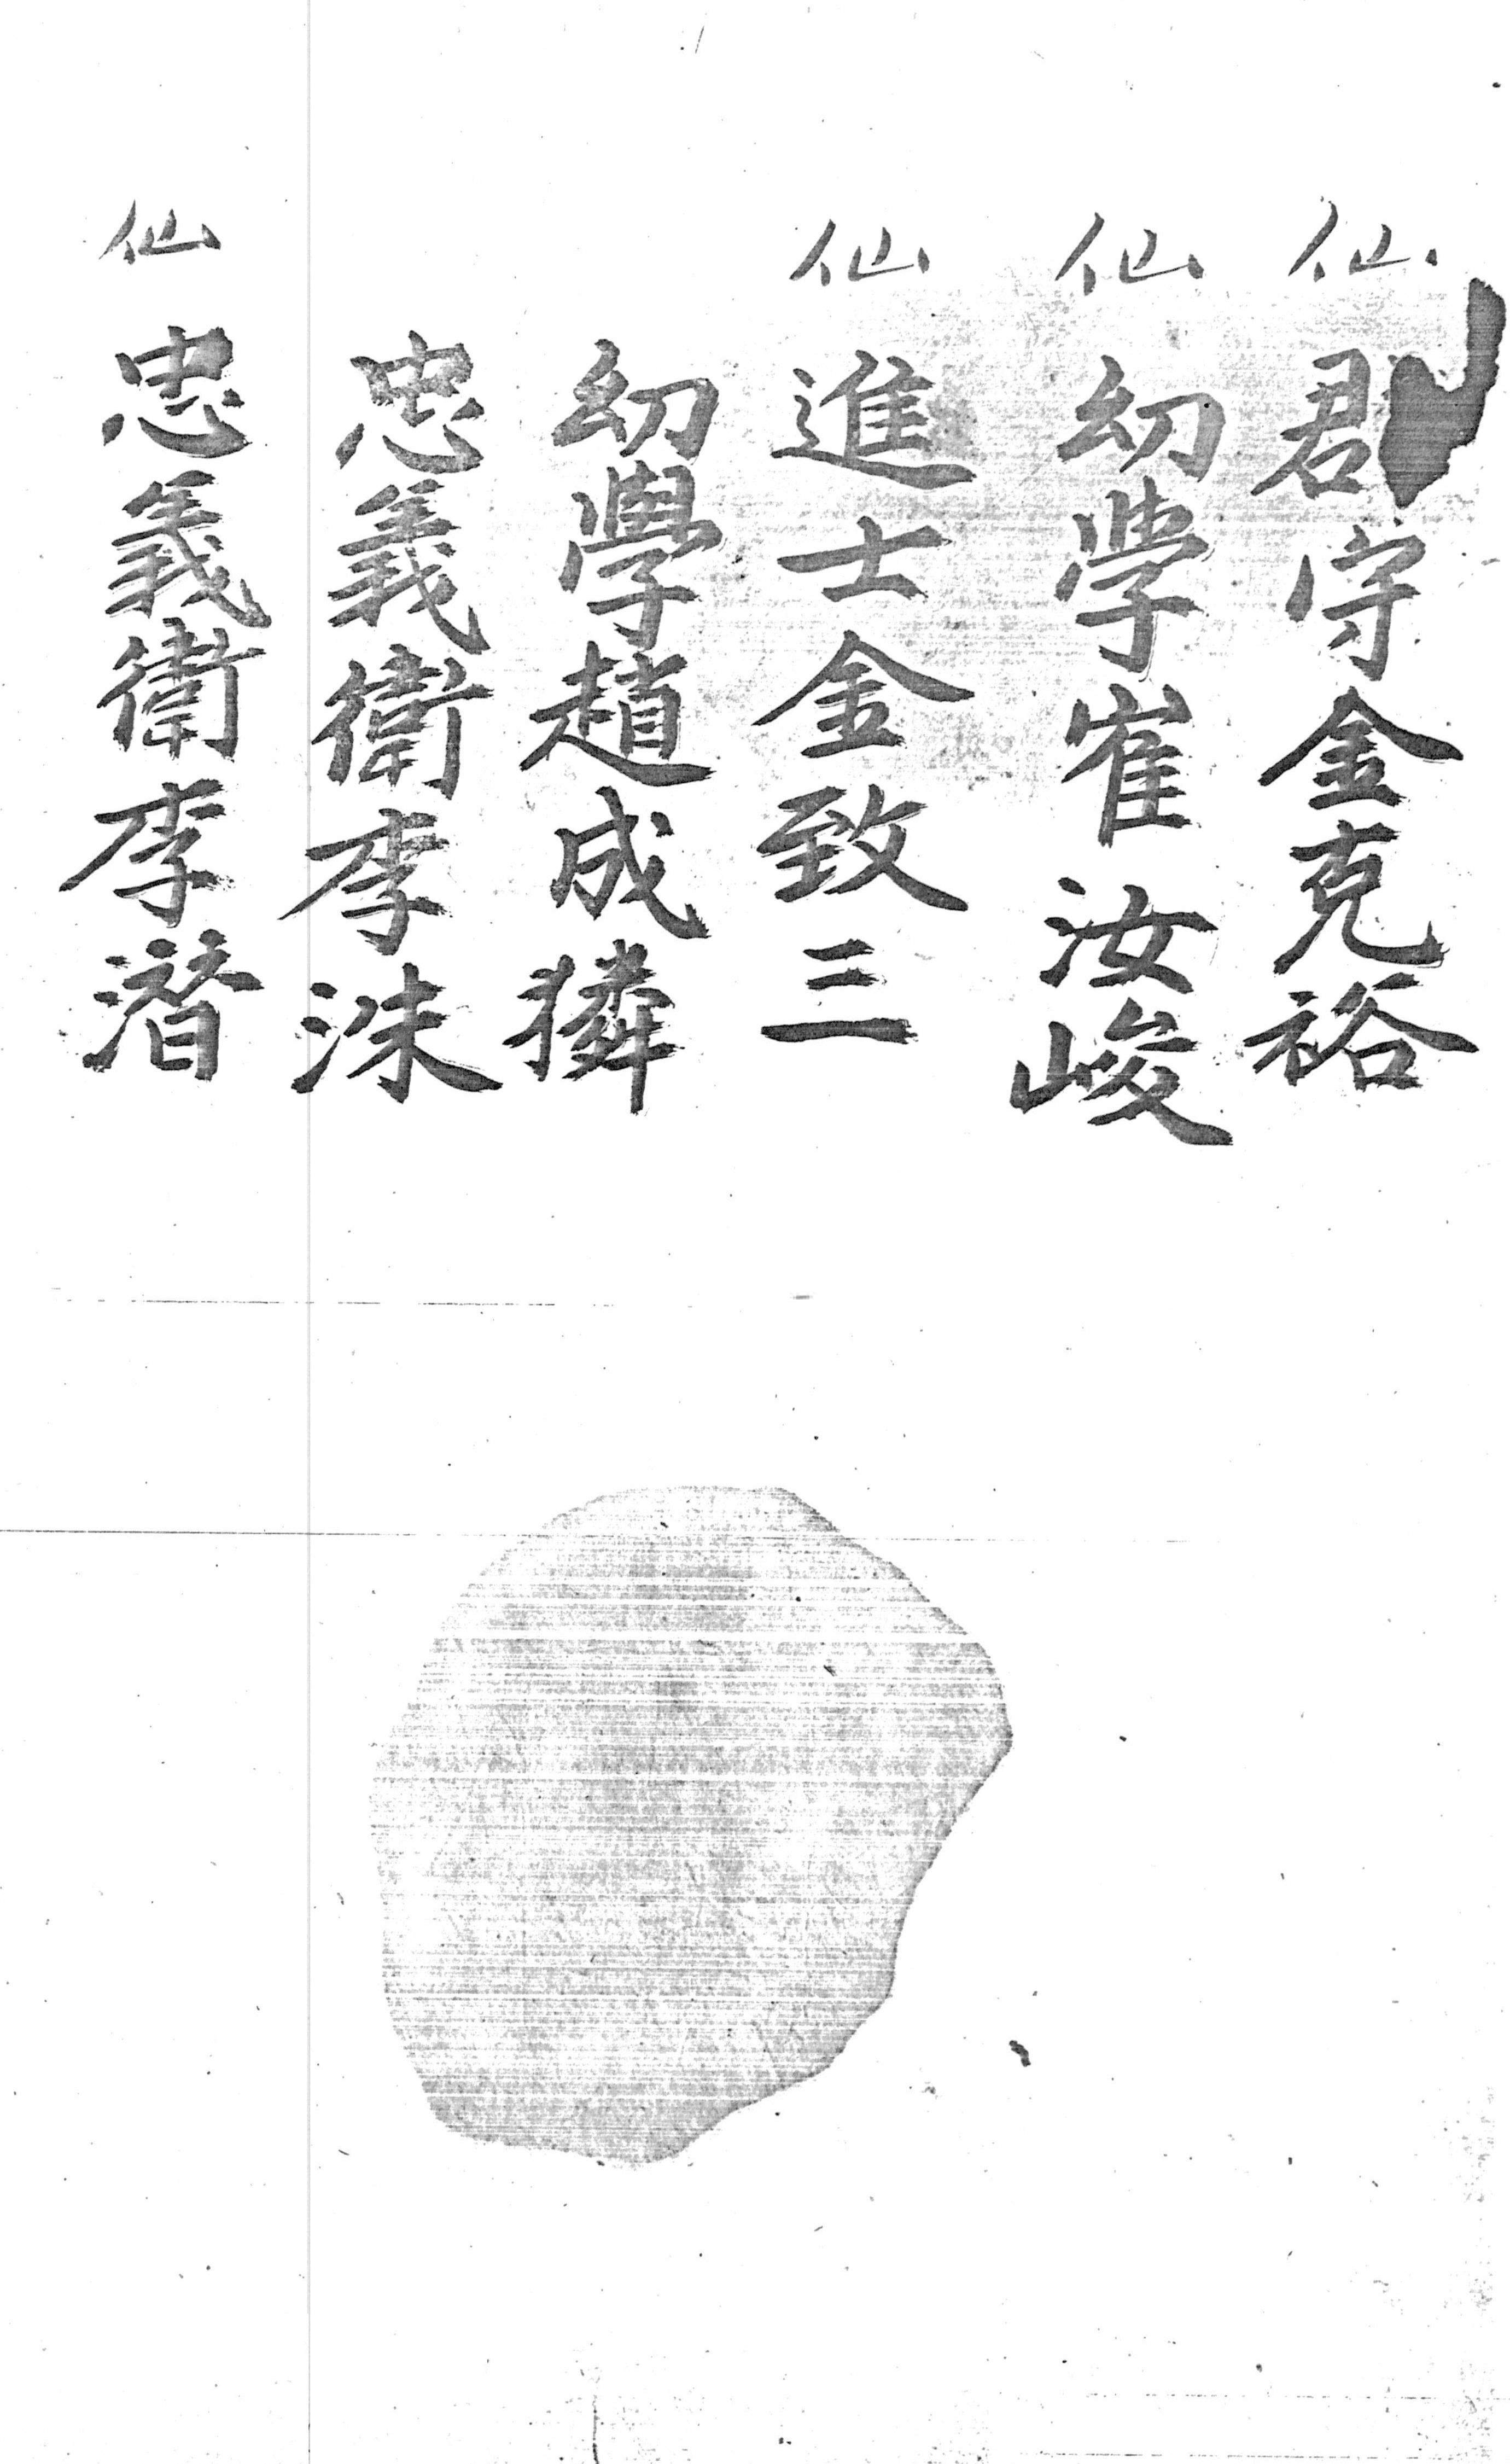 仙 郡守金克裕
仙 幼學崔汝峻
仙 進士金致三
幼學趙成獜
忠義衛李洙
仙 忠義衛李潛